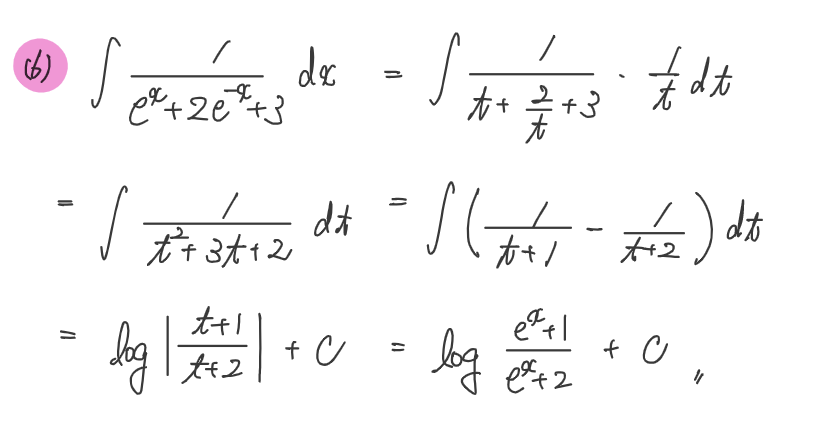 (6) ∫ 1/(eˣ+2e⁻ˣ+3) dx = ∫ 1/(t+2/t+3) · 1/t dt
= ∫ 1/(t²+3t+2) dt = ∫ (1/(t+1) - 1/(t+2)) dt
= log |(t+1)/(t+2)| + C = log (eˣ+1)/(eˣ+2) + C 〃